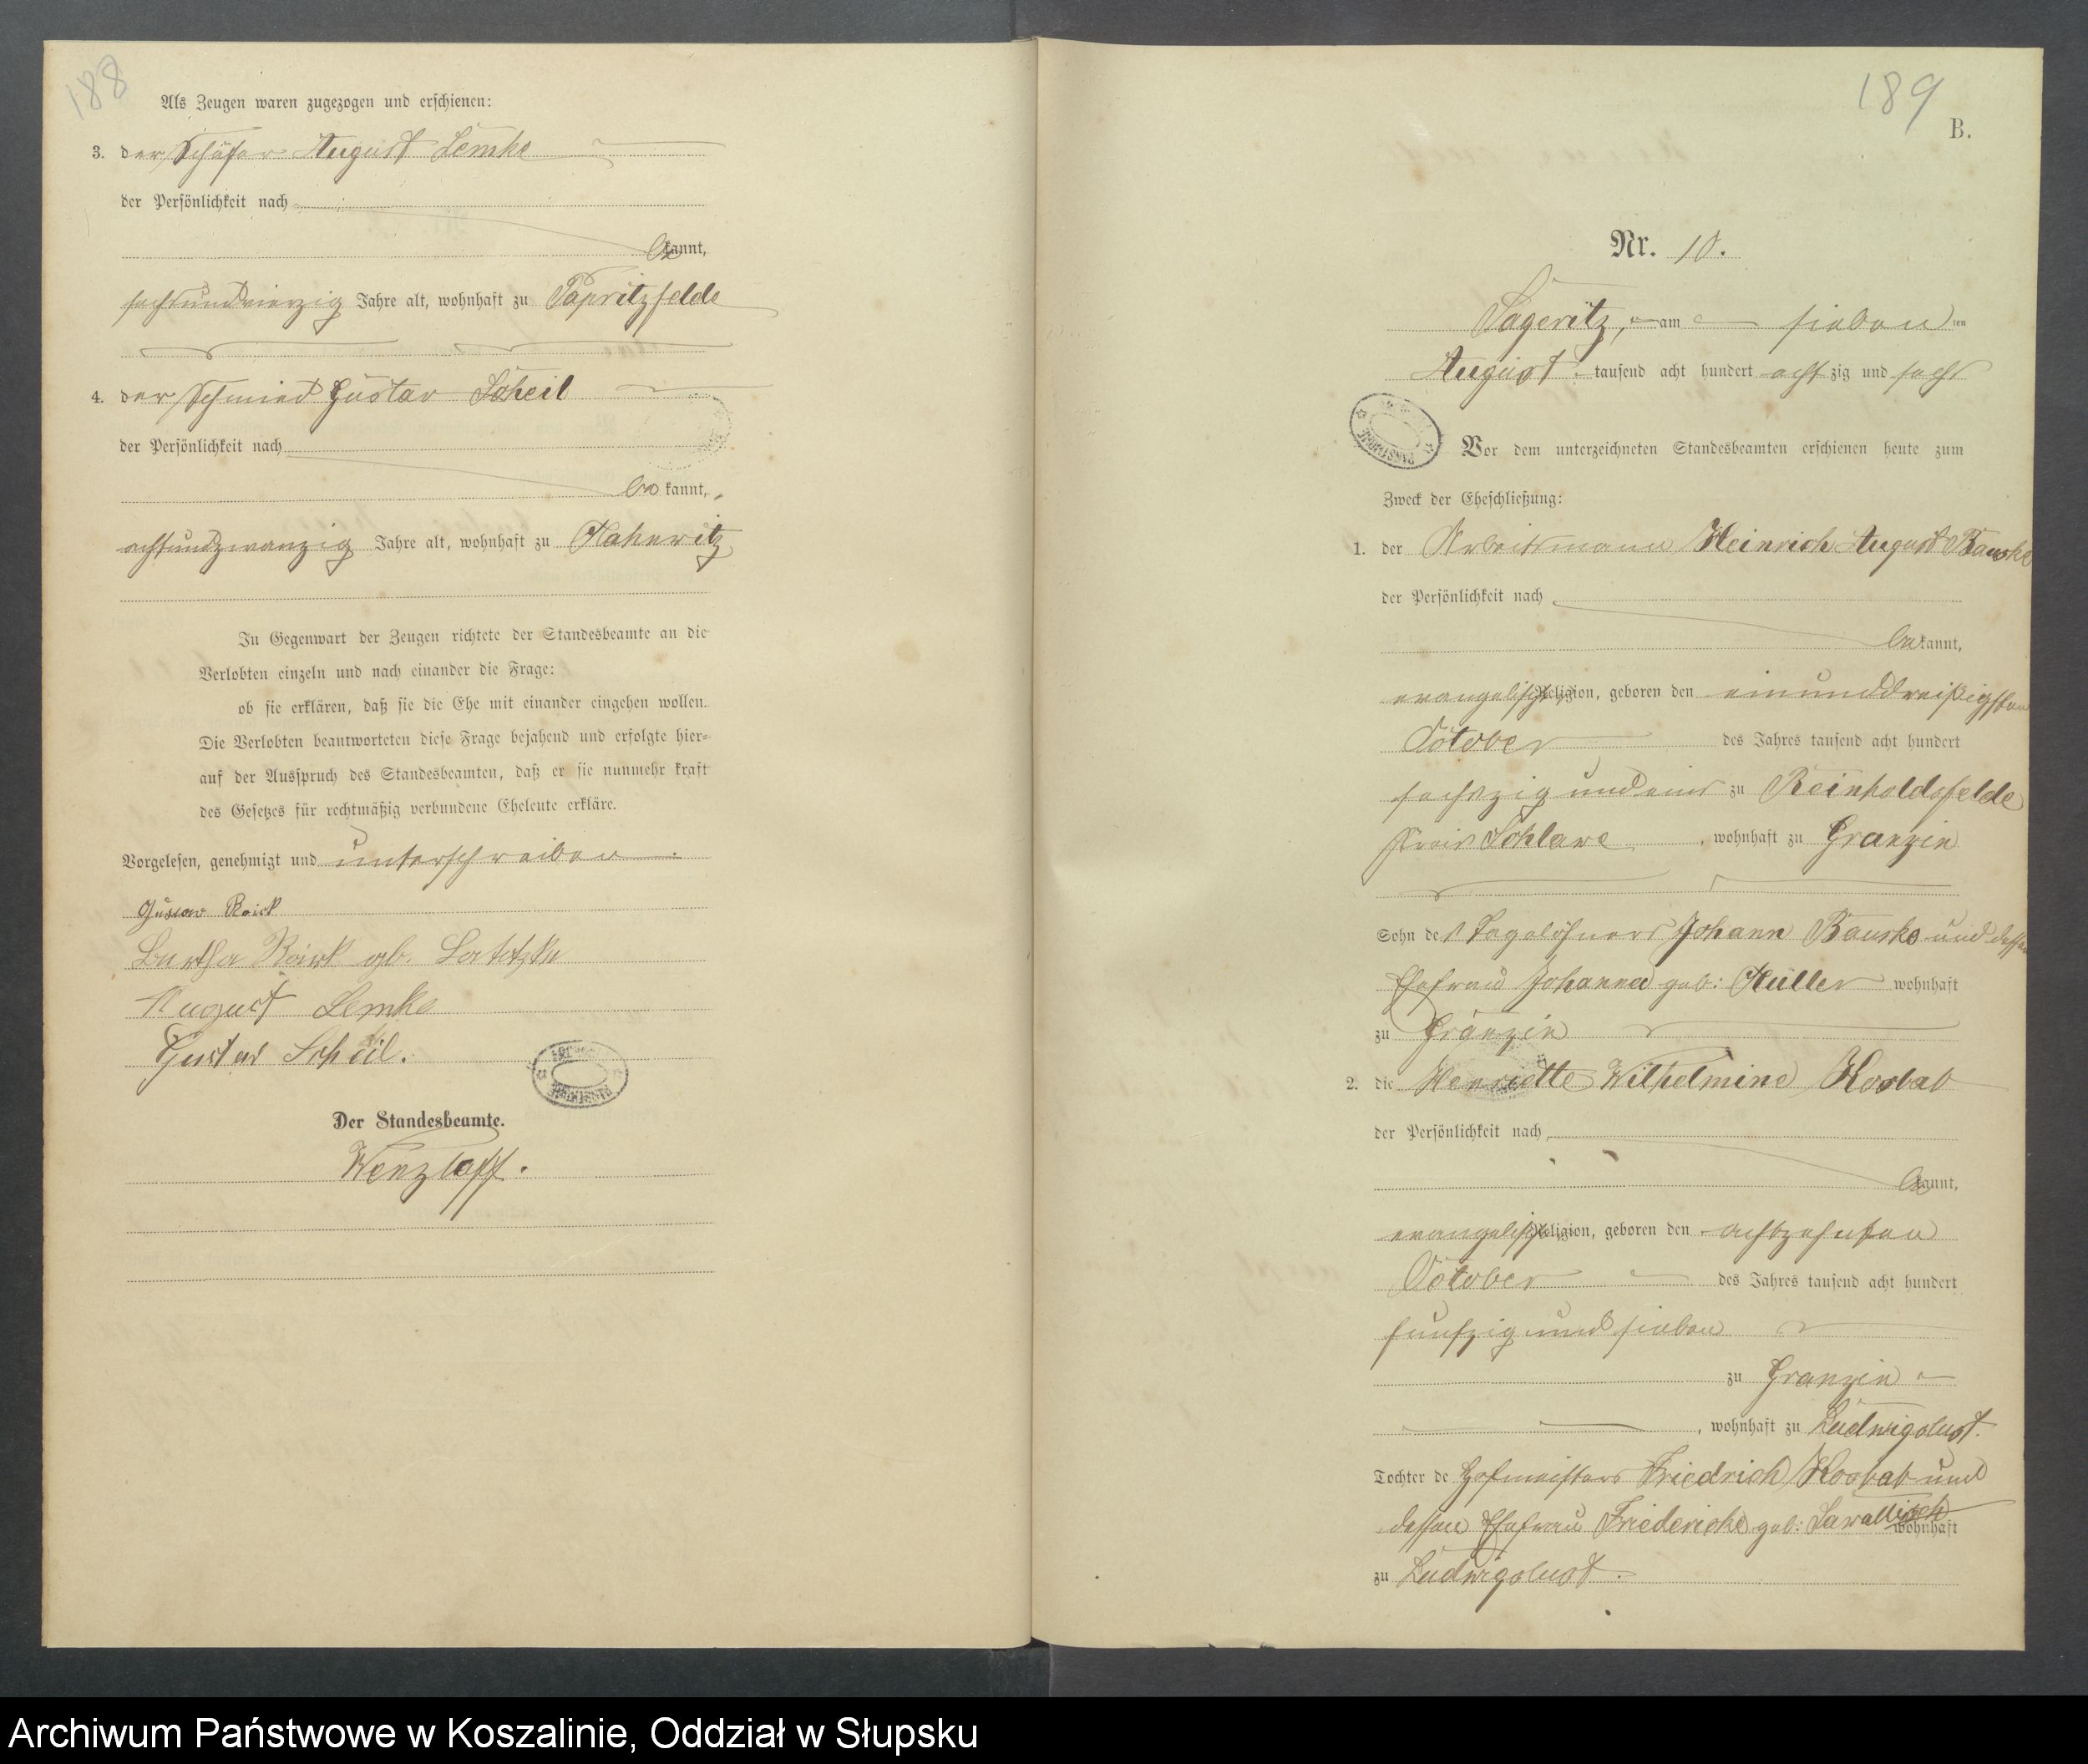 188
Als Zeugen waren zugezogen und erschienen:
3. der Schäfer August Lemke
der Persönlichkeit nach
bekannt,
sechsundvierzig Jahre alt, wohnhaft zu Papritzfelde
4. der Schmied Gustav Scheil
der Persönlichkeit nach
bekannt,
achtundzwanzig Jahre alt, wohnhaft zu Mahnwitz
In Gegenwart der Zeugen richtete der Standesbeamte an die
Verlobten einzeln und nach einander die Frage:
ob sie erklären, daß sie die Ehe mit einander eingehen wollen.
Die Verlobten beantworteten diese Frage bejahend und erfolgte hier-
auf der Ausspruch des Standesbeamten, daß er sie nunmehr kraft
des Gesetzes für rechtmäßig verbundene Eheleute erkläre.
Vorgelesen, genehmigt und unterschrieben.
Gustav
August Lemke
Gustav Scheil.
Der Standesbeamte.
Wenzlaff.
189
B.
Nr. 10.
Sageritz, am sieben ten
August tausend acht hundert achtzig und acht
Vor dem unterzeichneten Standesbeamten erschienen heute zum
Zweck der Eheschließung:
1. der Arbeitsmann Heinrich August Bauske
der Persönlichkeit nach
bekannt,
evangelischer Religion, geboren den einunddreißigsten
October des Jahres tausend acht hundert
sechszig und eins zu Reinholdsfelde
Kreis Schlawe, wohnhaft zu Granzin
Sohn des Tagelöhners Johann Bauske und dessen
Ehefrau Johanna geb: Müller wohnhaft
zu Granzin
2. die Henriette Wilhelmine Kosbab
der Persönlichkeit nach
bekannt,
evangelischer Religion, geboren den achtzehnten
October des Jahres tausend acht hundert
funfzig und sieben
zu Granzin
, wohnhaft zu Ludwigslust.
Tochter de Hofmeisters Friedrich Kosbab und
dessen Ehefrau Friedericke geb: wohnhaft
zu Ludwigslust.
Archiwum Państwowe w Koszalinie, Oddział w Słupsku